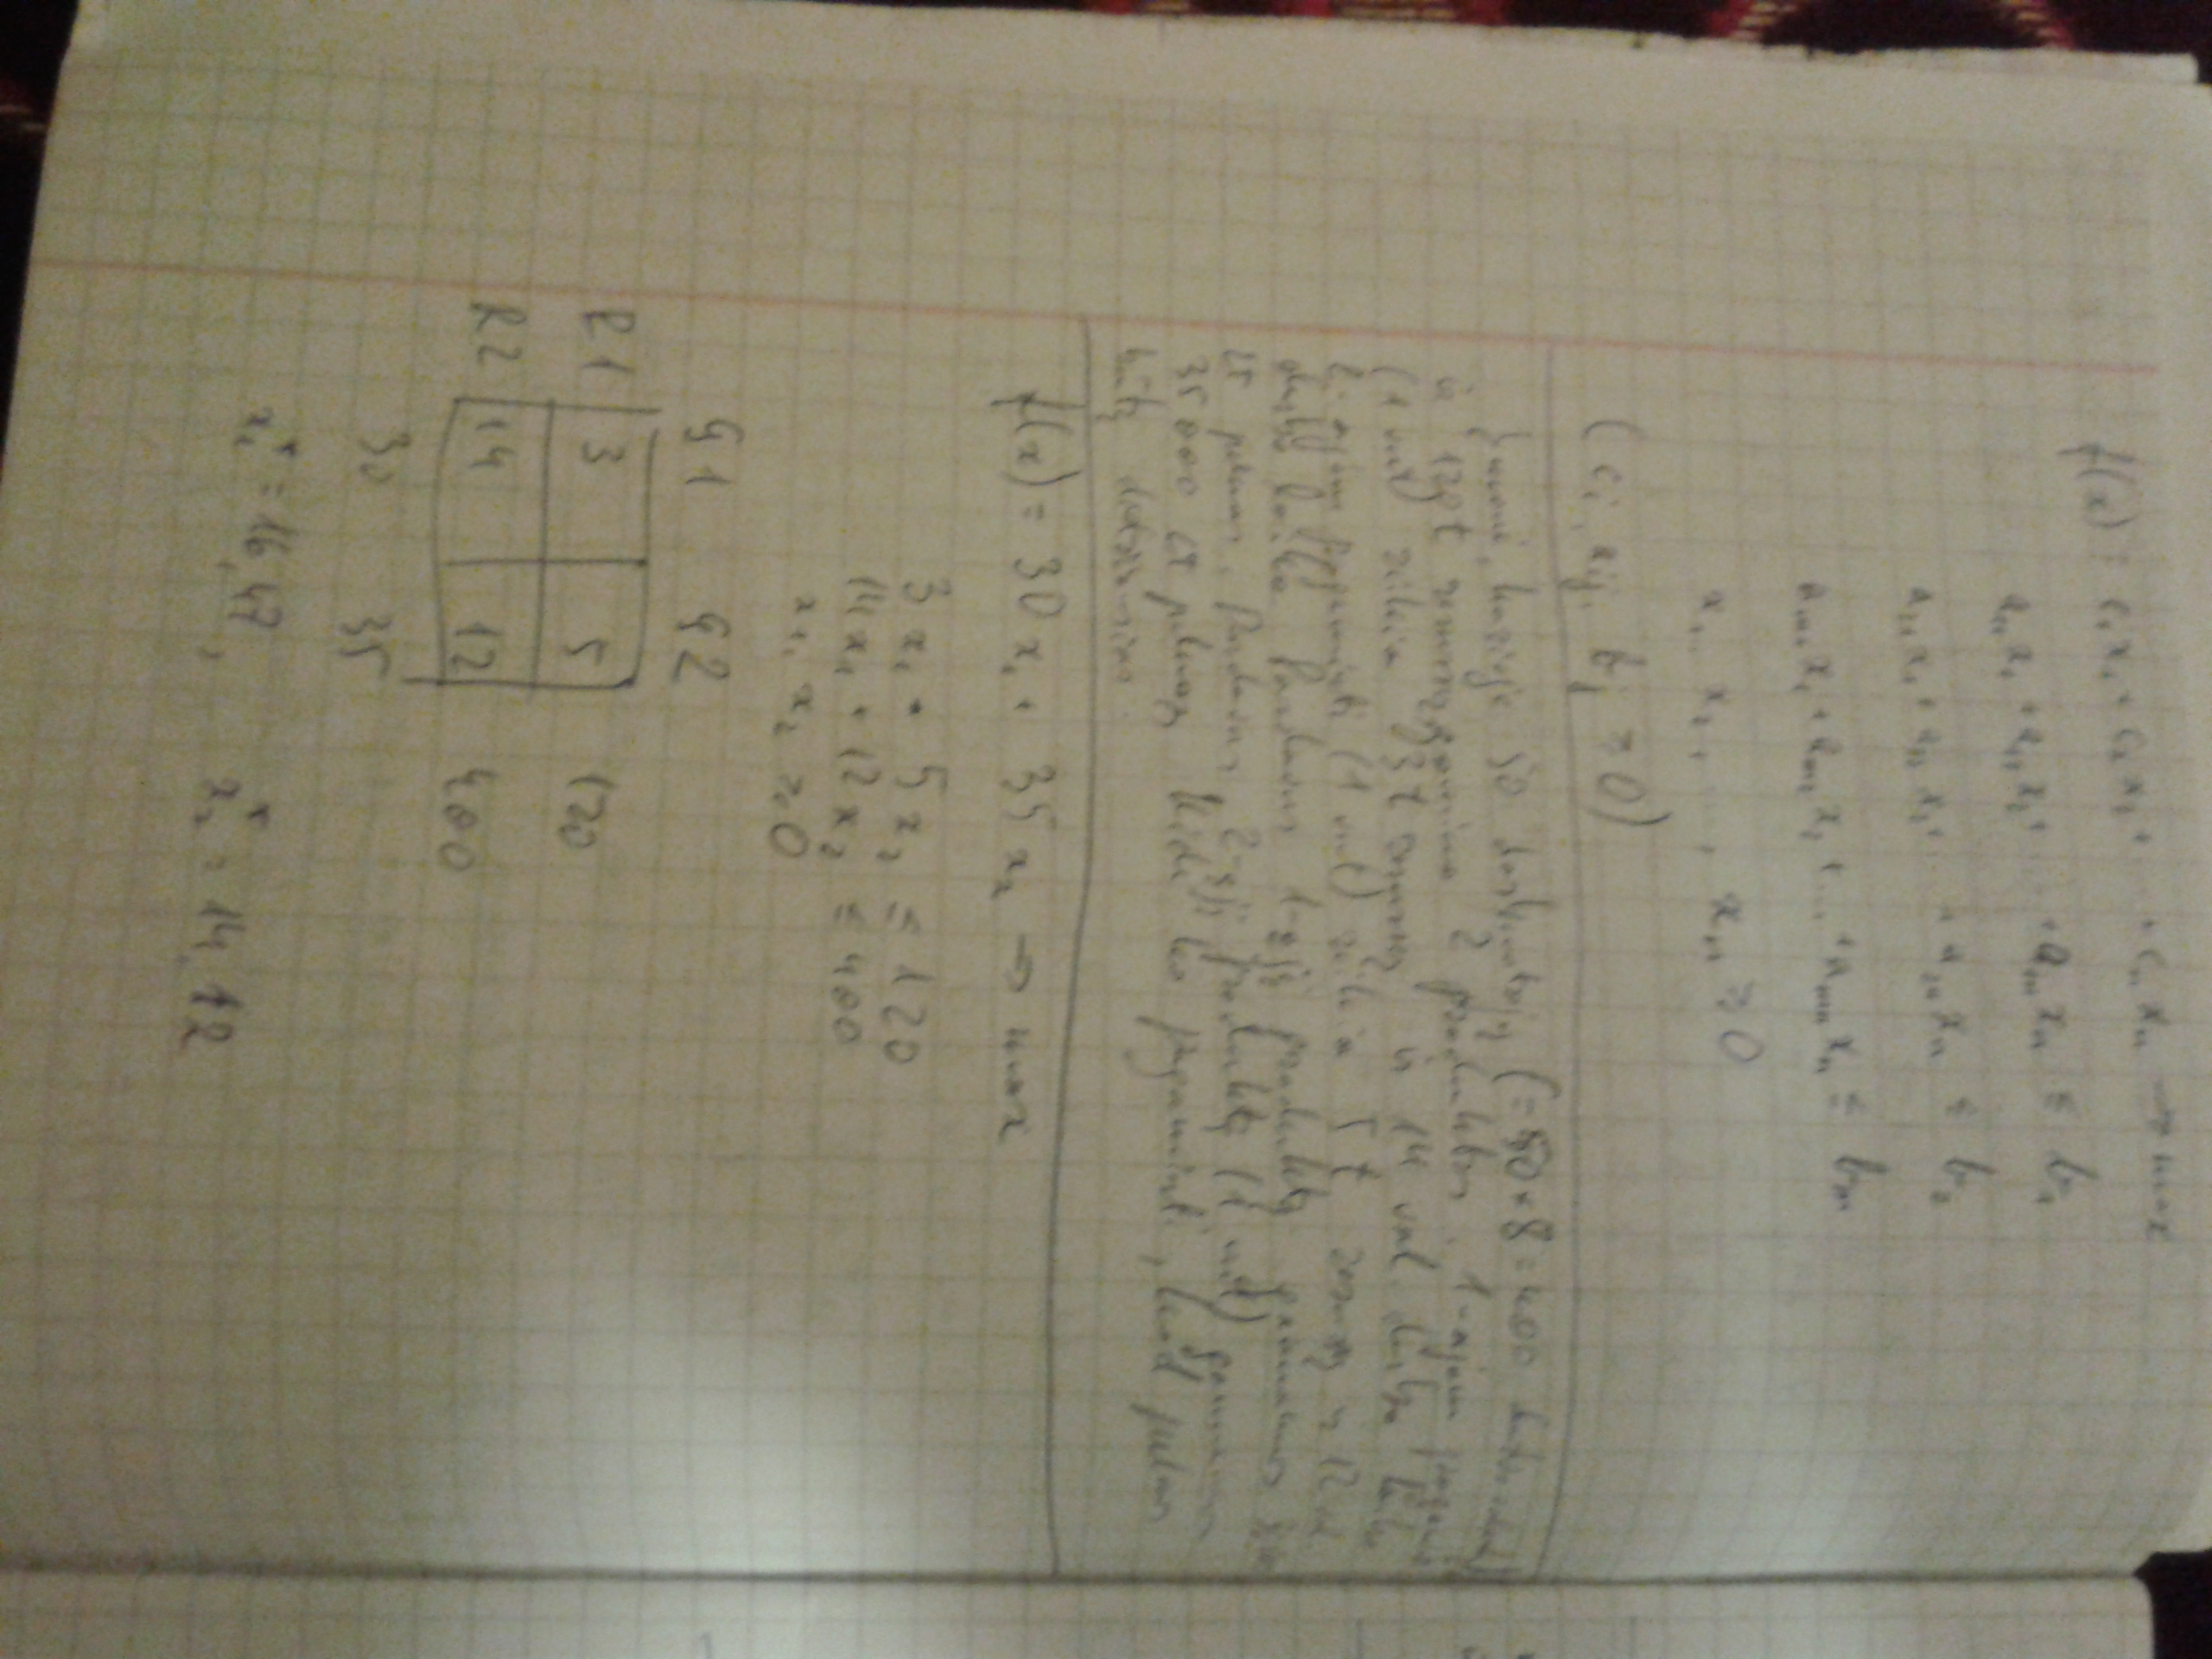 f(x) = c₁x₁ + c₂x₂ + ... + cₙxₙ → max
a₁₁x₁ + a₁₂x₂ + ... + a₁ₙxₙ ≤ b₁
a₂₁x₁ + a₂₂x₂ + ... + a₂ₙxₙ ≤ b₂
aₘ₁x₁ + aₘ₂x₂ + ... + aₘₙxₙ ≤ bₘ
x₁, x₂, ..., xₙ ≥ 0
(cᵢ, aᵢⱼ, bⱼ ≥ 0)
Įmonė, kurioje 50 darbuotojų (= 50 × 8 = 400
ir 120 t resursų gamina 2 produktus. 1-ajam
(1 vnt) reikia 3 t resursų ir 14 val. darbo laiko
2-ajam pagaminti (1 vnt) reikia 5 t resursų ir 12 val.
darbo laiko. Pardavus 1-ąjį produktą gaunamas
Lt pelnas. Pardavus 2-ąjį produktą (1 vnt) gaunamas
35000 Lt pelnas. Kiek ko pagaminti, kad pelnas
būtų didžiausias.
f(x) = 30x₁ + 35x₂ → max
3x₁ + 5x₂ ≤ 120
14x₁ + 12x₂ ≤ 400
x₁, x₂ ≥ 0
G1 G2
R1 3 5 120
R2 14 12 400
30 35
x₁* = 16,47, x₂* = 14,12